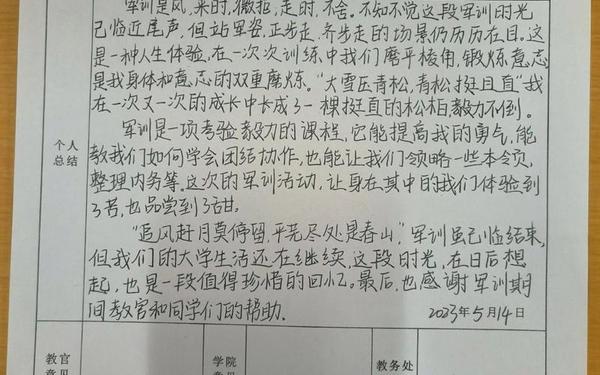 军训是风,来时,微拒,走时,不舍。不知不觉这段军训时光
已临近尾声,但站军姿、正步走、齐步走的场景仍历历在目。这
是一种人生体验,在一次次训练中我们磨平棱角,锻炼意志
是我身体和意志的双重磨炼。“大雪压青松,青松挺且直”我
在一次又一次的成长中长成了一棵挺直的松柏,毅力不倒。
军训是一项考验毅力的课程,它能提高我的勇气,能
教我们如何学会团结协作,也能让我们领略一些本领,
整理内务等,这次的军训活动,让身在其中的我们体验到
了苦,也品尝到了甜。
“追风赶月莫停留,平芜尽处是春山”,军训虽已临结束,
但我们的大学生活还在继续,这段时光,在日后想
起,也是一段值得珍惜的回忆。最后,也感谢军训期
间教官和同学们的帮助.
2023年5月14日
个人
总结
教官
意见
学院
意见
教务处